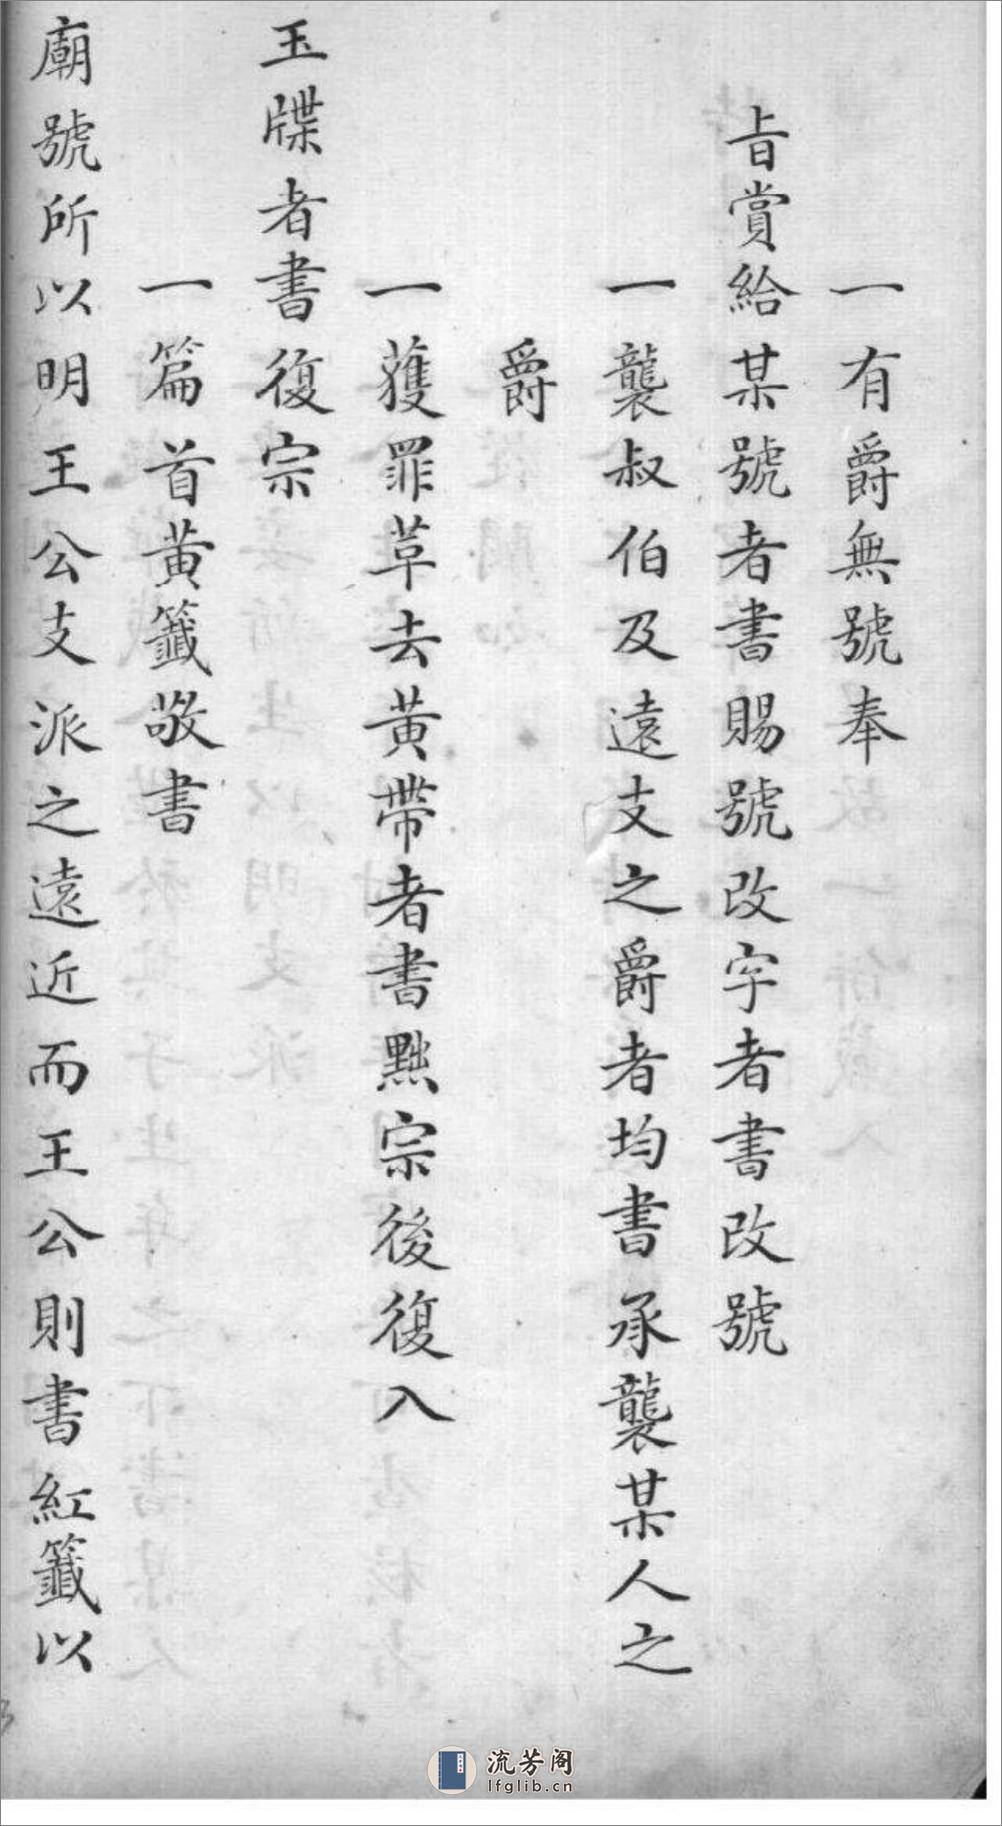 一有爵無號奉
旨賞給某號者書賜號改字者書改號
一襲叔伯及遠支之爵者均書承襲某人之
爵
一獲罪革去黃帶者書黜宗後復入
玉牒者書復宗
一篇首黃籤敬書
廟號所以明王公支派之遠近而王公則書紅籤以
流芳阁
lfglib.cn